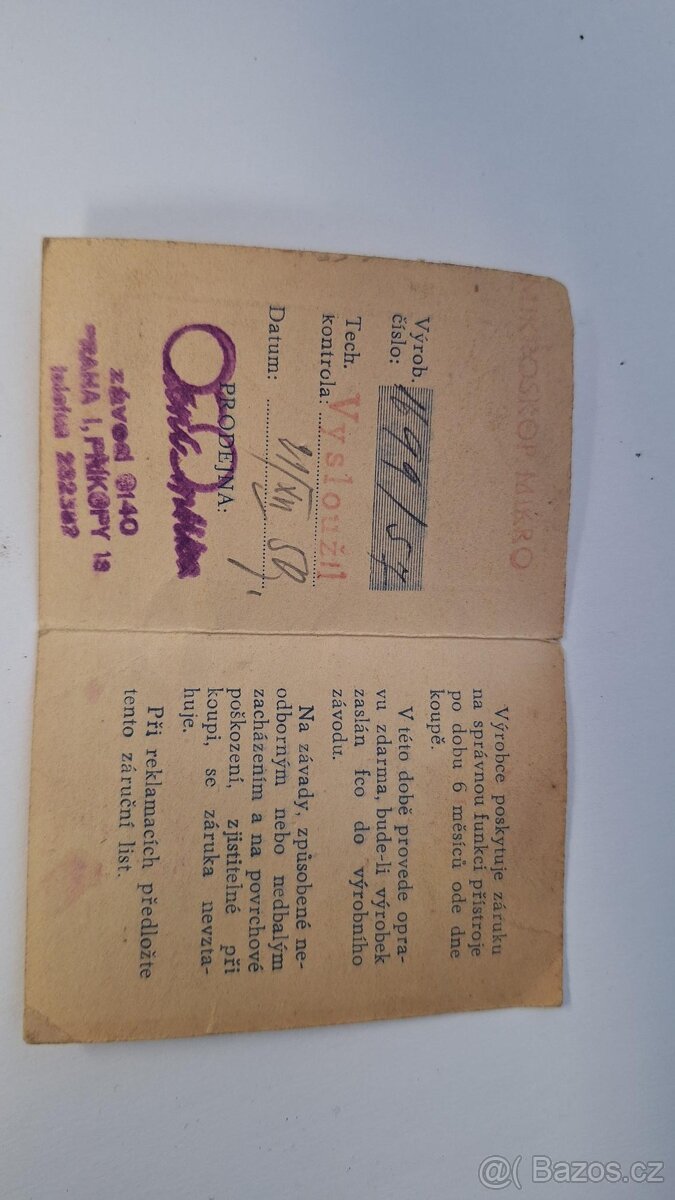 MIKROSKOP MIKRO
Výrob.
číslo: 1699/57
Tech.
kontrola: Vysloužil
Datum: 11/XII 58
PRODEJNA:
závod 0140
PRAHA I, PŘÍKOPY 13
telefon
Výrobce poskytuje záruku
na správnou funkci přístroje
po dobu 6 měsíců ode dne
koupě.
V této době provede opra-
vu zdarma, bude-li výrobek
zaslán fco do výrobního
závodu.
Na závady, způsobené ne-
odborným nebo nedbalým
zacházením a na povrchové
poškození, zjistitelné při
koupi, se záruka nevzta-
huje.
Při reklamacích předložte
tento záruční list.
@ Bazos.cz